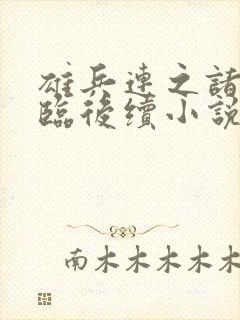 雄兵連之諸
臨後續小說
南木木木木木